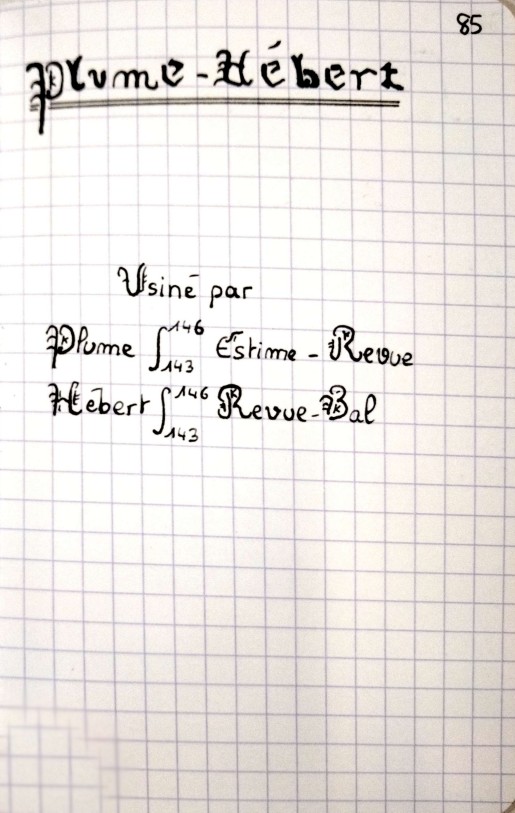 85
Plume-Hébert
Usiné par
Plume ∫₁₄₃¹⁴⁶ Estime-Revue
Hébert ∫₁₄₃¹⁴⁶ Revue-Bal